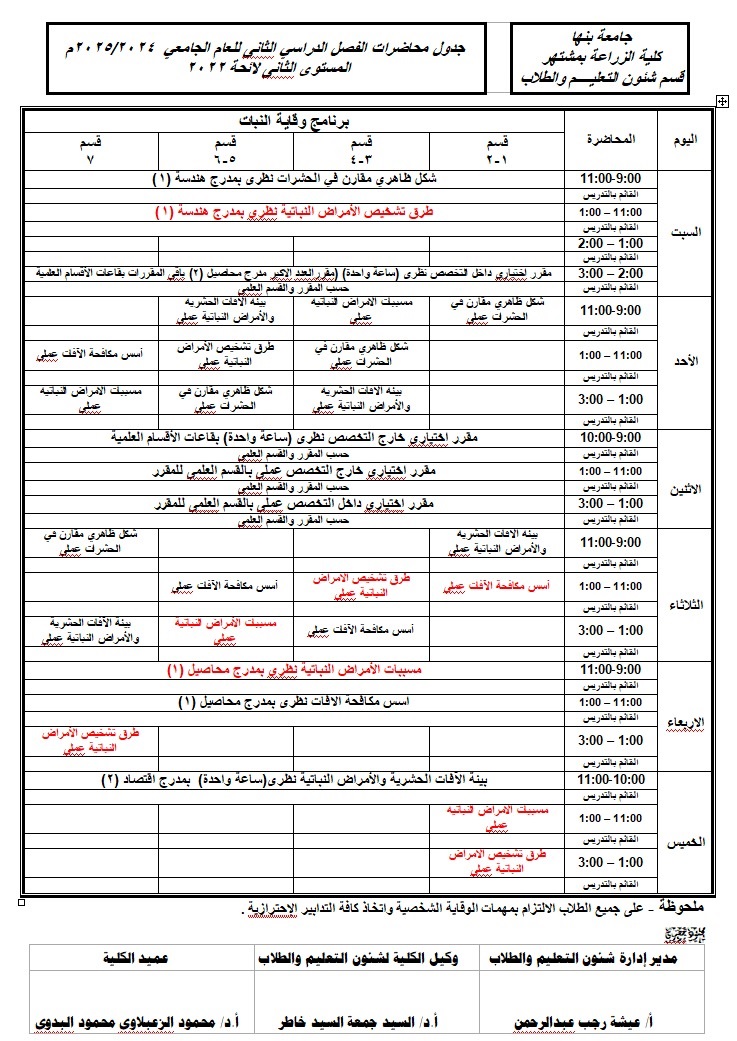 جامعة بنها
كلية الزراعة بمشتهر
قسم شئون التعليـــم والطلاب
جدول محاضرات الفصل الدراسي الثاني للعام الجامعي ٢٠٢٥/٢٠٢٤م
المستوى الثاني لائحة ٢٠٢٢
اليوم
المحاضرة
برنامج وقاية النبات
قسم
١-٢
قسم
٣-٤
قسم
٥-٦
قسم
٧
السبت
11:00-9:00
شكل ظاهري مقارن في الحشرات نظرى بمدرج هندسة (١)
القائم بالتدريس
1:00 – 11:00
طرق تشخيص الأمراض النباتية نظري بمدرج هندسة (١)
القائم بالتدريس
2:00 – 1:00
القائم بالتدريس
3:00 – 2:00
مقرر اختياري داخل التخصص نظرى (ساعة واحدة) (مقرر العدد الاكبر مدرج محاصيل (٢) باقي المقررات بقاعات الأقسام العلمية
القائم بالتدريس
حسب المقرر والقسم العلمي
الأحد
11:00-9:00
شكل ظاهري مقارن في الحشرات عملي
مسببات الأمراض النباتيه عملي
بيئة الآفات الحشرية والأمراض النباتية عملي
القائم بالتدريس
1:00 – 11:00
شكل ظاهري مقارن في الحشرات عملي
طرق تشخيص الأمراض النباتية عملي
أسس مكافحة الآفات عملي
القائم بالتدريس
3:00 – 1:00
بيئة الافات الحشريه والأمراض النباتية عملي
شكل ظاهري مقارن في الحشرات عملي
مسببات الامراض النباتيه عملي
القائم بالتدريس
الاثنين
10:00-9:00
مقرر اختياري خارج التخصص نظرى (ساعة واحدة) بقاعات الأقسام العلمية
القائم بالتدريس
حسب المقرر والقسم العلمي
1:00 – 11:00
مقرر اختياري خارج التخصص عملي بالقسم العلمي للمقرر
القائم بالتدريس
حسب المقرر والقسم العلمي
3:00 – 1:00
مقرر اختياري داخل التخصص عملي بالقسم العلمي للمقرر
القائم بالتدريس
حسب المقرر والقسم العلمي
الثلاثاء
11:00-9:00
بيئة الآفات الحشريه والأمراض النباتية عملي
شكل ظاهري مقارن في الحشرات عملي
القائم بالتدريس
1:00 – 11:00
أسس مكافحة الآفات عملي
طرق تشخيص الامراض النباتية عملي
أسس مكافحة الآفات عملي
القائم بالتدريس
3:00 – 1:00
أسس مكافحة الآفات عملي
مسببات الأمراض النباتية عملي
بيئة الآفات الحشرية والأمراض النباتية عملي
القائم بالتدريس
الاربعاء
11:00-9:00
مسببات الأمراض النباتية نظري بمدرج محاصيل (١)
القائم بالتدريس
1:00 – 11:00
اسس مكافحة الافات نظرى بمدرج محاصيل (١)
القائم بالتدريس
3:00 – 1:00
طرق تشخيص الأمراض النباتية عملي
القائم بالتدريس
الخميس
11:00-10:00
بيئة الآفات الحشرية والأمراض النباتية نظرى(ساعة واحدة) بمدرج اقتصاد (٢)
القائم بالتدريس
1:00 – 11:00
مسببات الامراض النباتيه عملي
القائم بالتدريس
3:00 – 1:00
طرق تشخيص الامراض النباتية عملي
القائم بالتدريس
ملحوظة - على جميع الطلاب الالتزام بمهمات الوقاية الشخصية واتخاذ كافة التدابير الاحترازية .
مدير إدارة شئون التعليم والطلاب
وكيل الكلية لشئون التعليم والطلاب
عميد الكلية
أ/ عيشة رجب عبدالرحمن
أ.د/ السيد جمعة السيد خاطر
أ.د/ محمود الزعبلاوي محمود البدوى